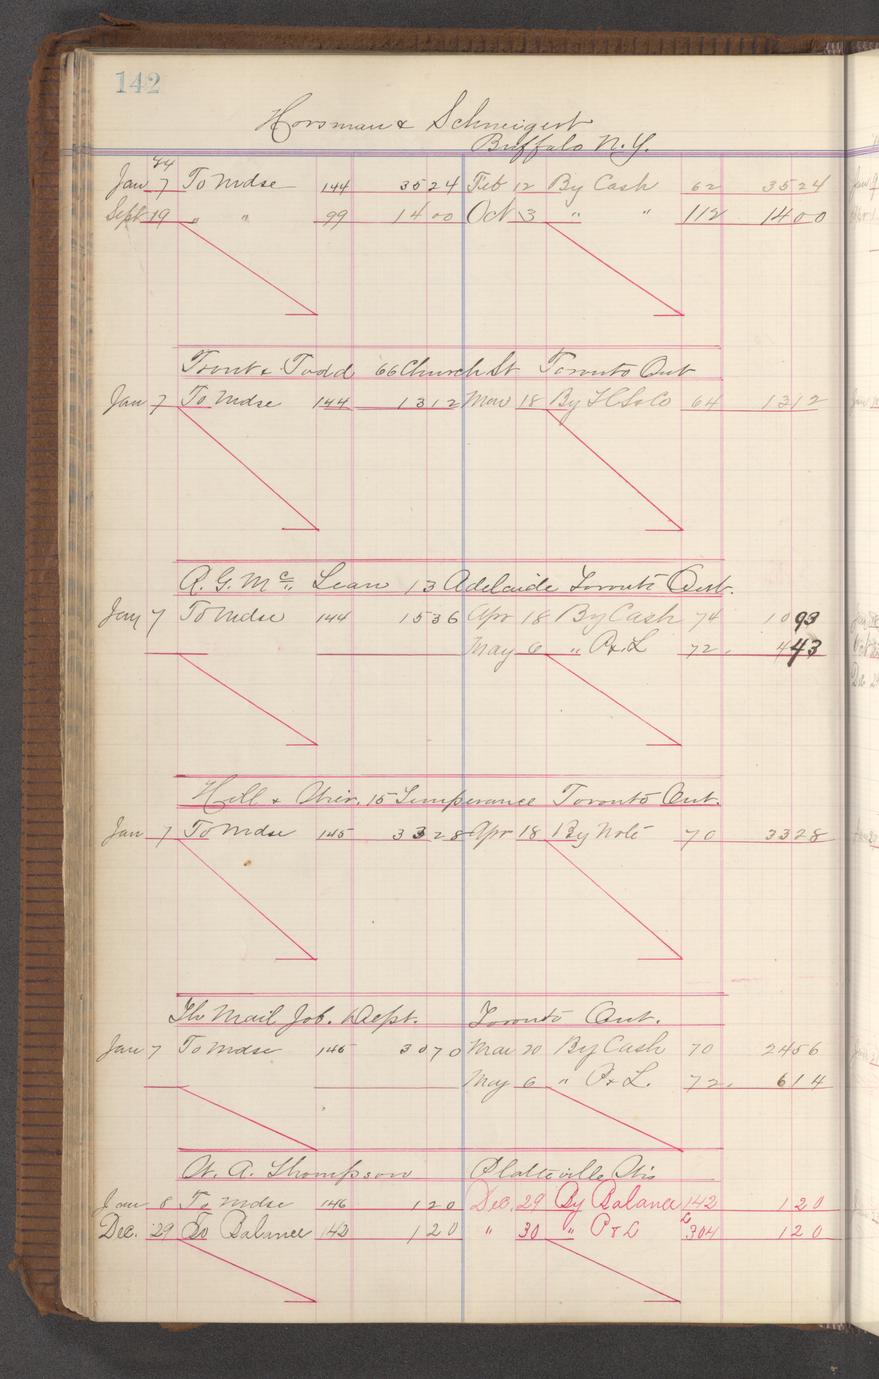 142
Horsman & Schweigert
Buffalo N.Y.
Jan 7 To Mdse 144 3524 Feb 12 By Cash 62 3524
Sept 19 " " 99 1400 Oct 3 " " 112 1400
Trout & Todd 66 Church St Toronto Ont
Jan 7 To Mdse 144 1312 Mar 18 By 64 1312
A. G. Mc Lean 13 Adelaide Toronto Ont.
Jan 7 To Mdse 144 1536 Apr 18 By Cash 74 1093
May 6 " P&L 72. 443
Hill & Weir, 15 Temperance Toronto Ont.
Jan 7 To Mdse 145 3328 Apr 18 By Note 70 3328
The Mail Job. Dept. Toronto Ont.
Jan 7 To Mdse 145 3070 Mar 20 By Cash 70 2456
May 6 " P&L. 72. 614
A. Thompson Platteville Wis
Jan 8 To Mdse 146 120 Dec. 29 By Balance 142 120
Dec. 29 To Balance 142 120 " 30 " P&L 304 120